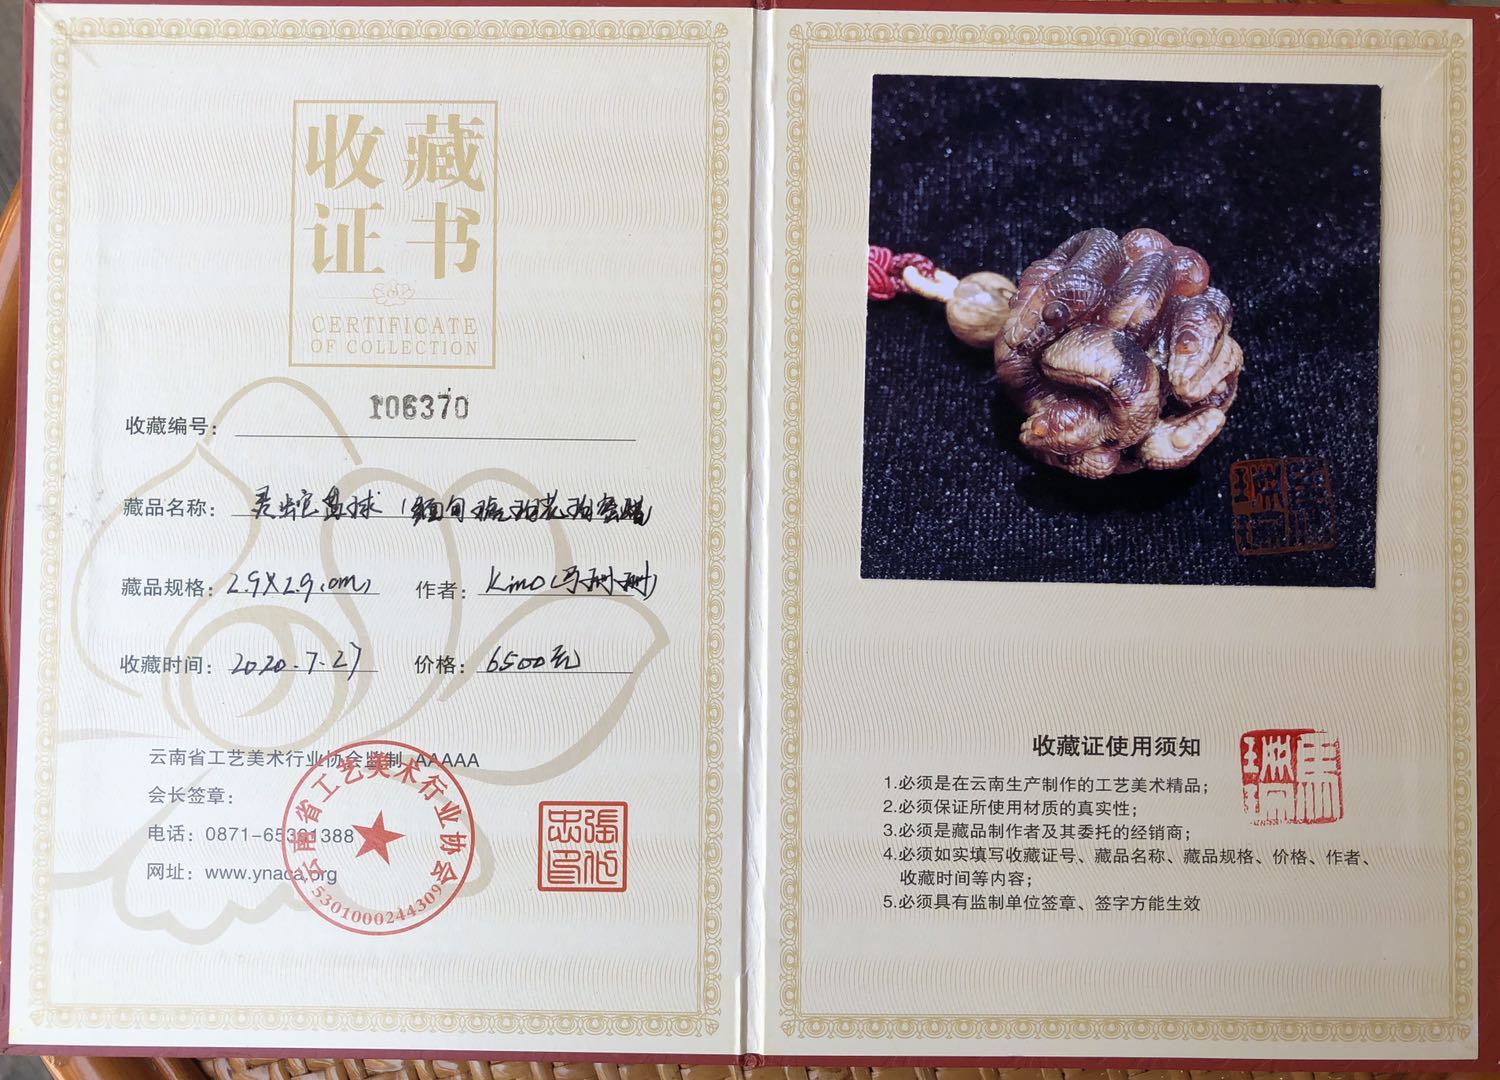 收藏
证书
CERTIFICATE
OF COLLECTION
收藏编号： 106370
藏品名称： 灵蛇盘球（缅甸琥珀花珀蜜蜡
藏品规格： 2.9X2.9（cm） 作者： Kino（马珊珊）
收藏时间： 2020.7.27 价格： 6500元
云南省工艺美术行业协会监制 AAAAA
会长签章：
电话：0871-65391388
网址：www.ynaca.org
云南省工艺美术行业协会
5301000244309
收藏证使用须知
1.必须是在云南生产制作的工艺美术精品；
2.必须保证所使用材质的真实性；
3.必须是藏品制作者及其委托的经销商；
4.必须如实填写收藏证号、藏品名称、藏品规格、价格、作者、
收藏时间等内容；
5.必须具有监制单位签章、签字方能生效